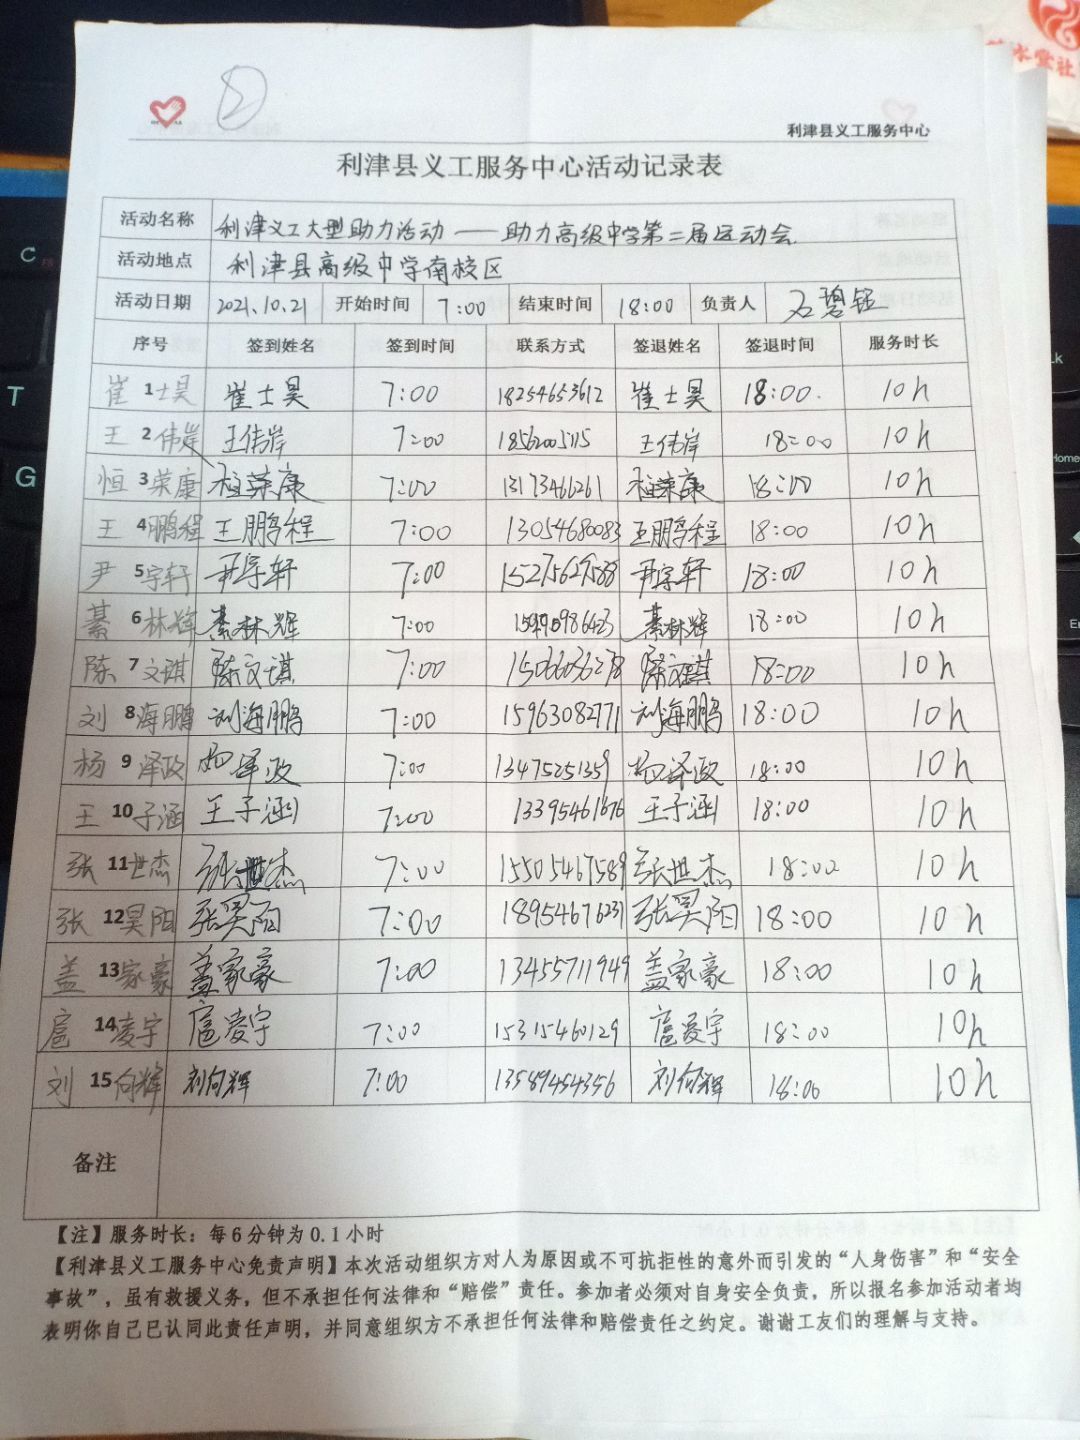 ②
利津县义工服务中心
利津县义工服务中心活动记录表
活动名称 利津义工大型助力活动——助力高级中学第二届运动会
活动地点 利津县高级中学南校区
活动日期 2021.10.21 开始时间 7:00 结束时间 18:00 负责人
序号 签到姓名 签到时间 联系方式 签退姓名 签退时间 服务时长
崔 1 士昊 崔士昊 7:00 18254653612 崔士昊 18:00. 10h
王 2 伟岸 王伟岸 7:00 18562005115 王伟岸 18:00 10h
3 荣康 7:00 13173466261 18:00 10h
王 4 鹏程 王鹏程 7:00 13054680083 王鹏程 18:00 10h
尹 5 宇轩 尹宇轩 7:00 15275627588 尹宇轩 18:00 10h
綦 6 林辉 綦林辉 7:00 綦林辉 18:00 10h
陈 7 文琪 陈文琪 7:00 15066036278 陈文琪 18:00 10h
刘 8 海鹏 刘海鹏 7:00 15963082771 刘海鹏 18:00 10h
杨 9 泽政 杨泽政 7:00 13475251359 杨泽政 18:00 10h
王 10 子涵 王子涵 7:00 13395461676 王子涵 18:00 10h
张 11 世杰 张世杰 7:00 15505467589 张世杰 18:00 10h
张 12 昊阳 张昊阳 7:00 18954676231 张昊阳 18:00 10h
盖 13 家豪 盖家豪 7:00 13455711949 盖家豪 18:00 10h
扈 14 凌宇 扈凌宇 7:00 15315460129 扈凌宇 18:00 10h
刘 15 向辉 刘向辉 7:00 13589454356 刘向辉 18:00 10h
备注
【注】服务时长：每6分钟为0.1小时
【利津县义工服务中心免责声明】本次活动组织方对人为原因或不可抗拒性的意外而引发的“人身伤害”和“安全
事故”，虽有救援义务，但不承担任何法律和“赔偿”责任。参加者必须对自身安全负责，所以报名参加活动者均
表明你自己已认同此责任声明，并同意组织方不承担任何法律和赔偿责任之约定。谢谢工友们的理解与支持。